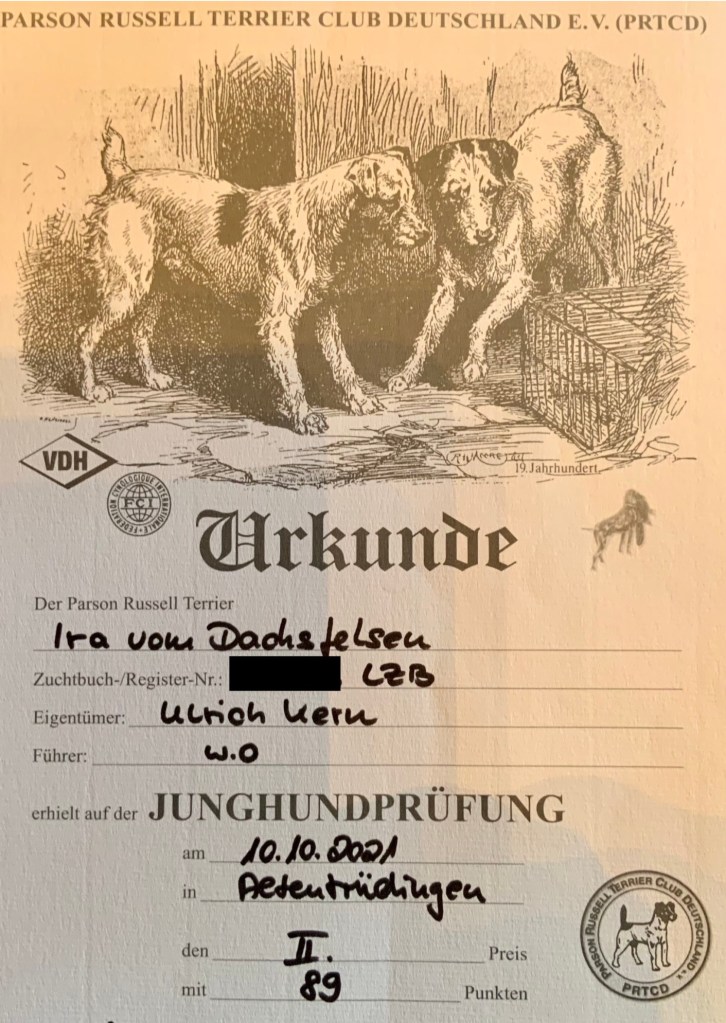 PARSON RUSSELL TERRIER CLUB DEUTSCHLAND E.V. (PRTCD)
19. Jahrhundert.
VDH
FEDERATION CYNOLOGIQUE INTERNATIONALE
FCI
Urkunde
Der Parson Russell Terrier
Ira vom Dachsfelsen
Zuchtbuch-/Register-Nr.: LZB
Eigentümer: Ulrich Kern
Führer: w.o
erhielt auf der JUNGHUNDPRÜFUNG
am 10.10.2021
in Altentrüdingen
den II. Preis
mit 89 Punkten
PARSON RUSSELL TERRIER CLUB DEUTSCHLAND e.V.
PRTCD